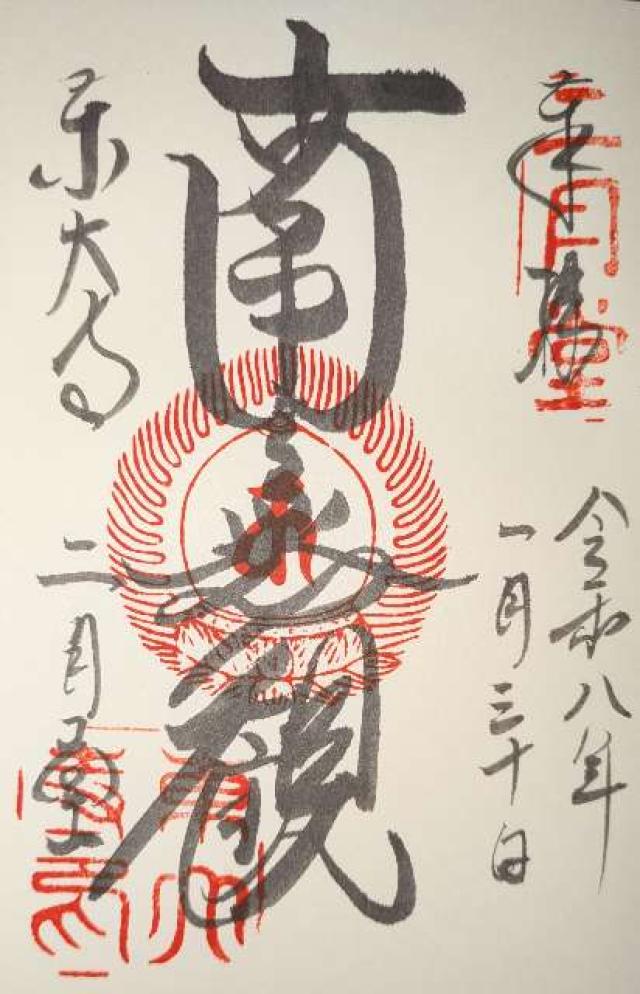 奉拝
令和八年
一月三十日
南無観
東大寺
二月堂
二月堂